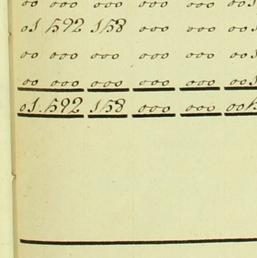 oo ooo ooo ooo ooo oo
01 592 158 ooo ooo oo
oo ooo ooo ooo ooo oo
oo ooo ooo ooo ooo oo
01.592 158 ooo ooo oo